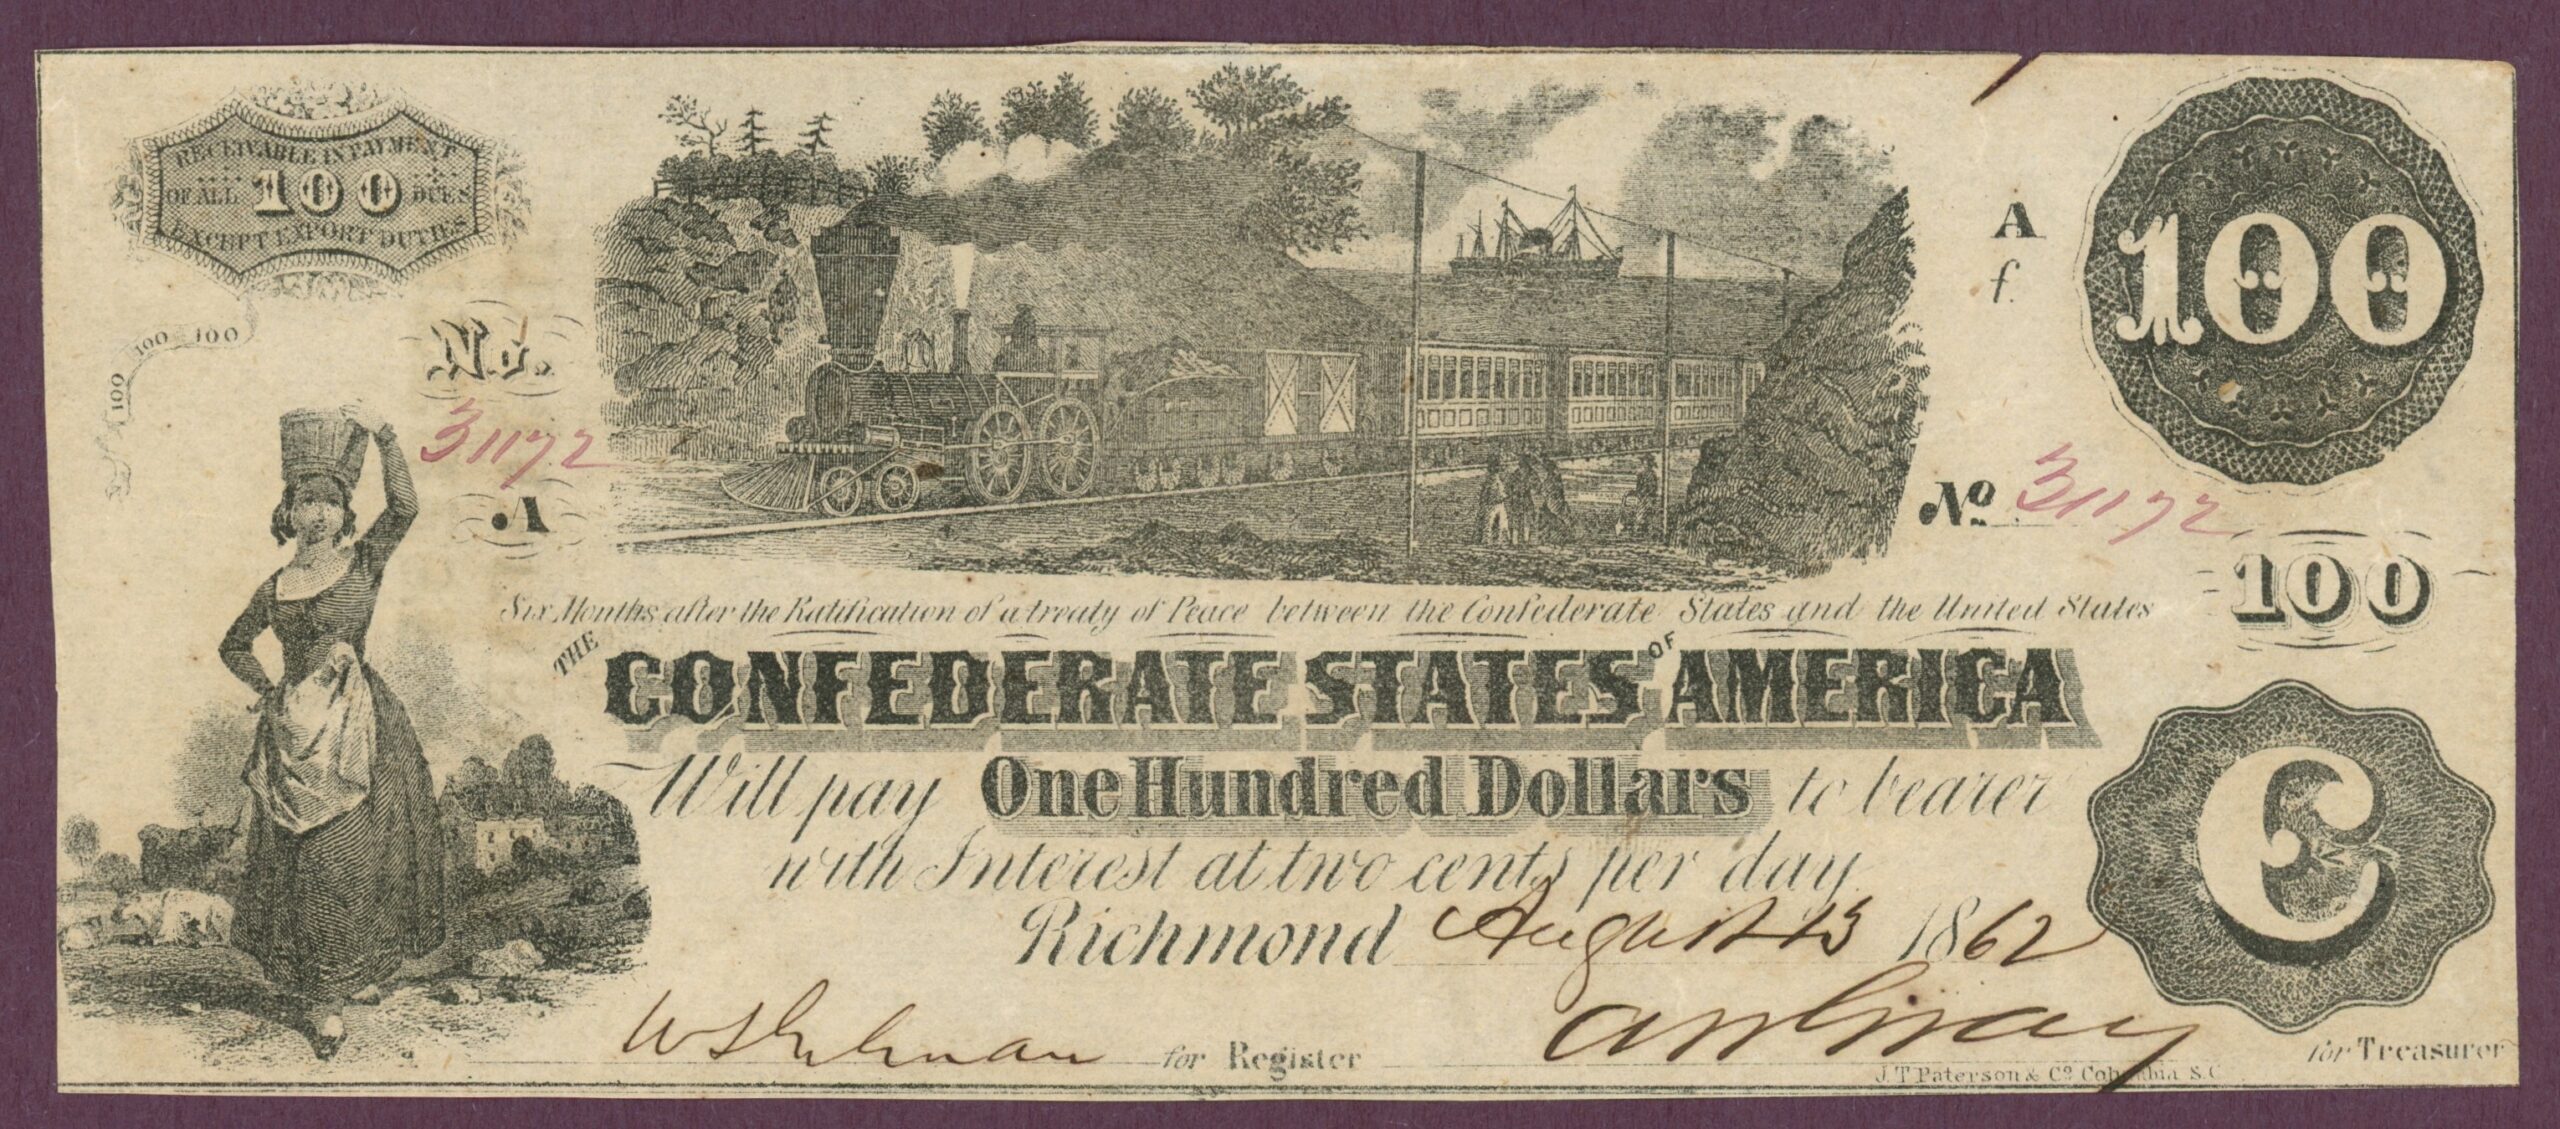 RECEIVABLE IN PAYMENT
OF ALL 100 DUES
EXCEPT EXPORT DUTIES
100 100 100
No.
31172
A
A
f.
100
No 31172
100
Six Months after the Ratification of a treaty of Peace between the Confederate States and the United States
THE CONFEDERATE STATES OF AMERICA
Will pay One Hundred Dollars to bearer
with Interest at two cents per day
Richmond August 13 1862
C
for Register
for Treasurer
J. T. Paterson & Co Columbia S. C